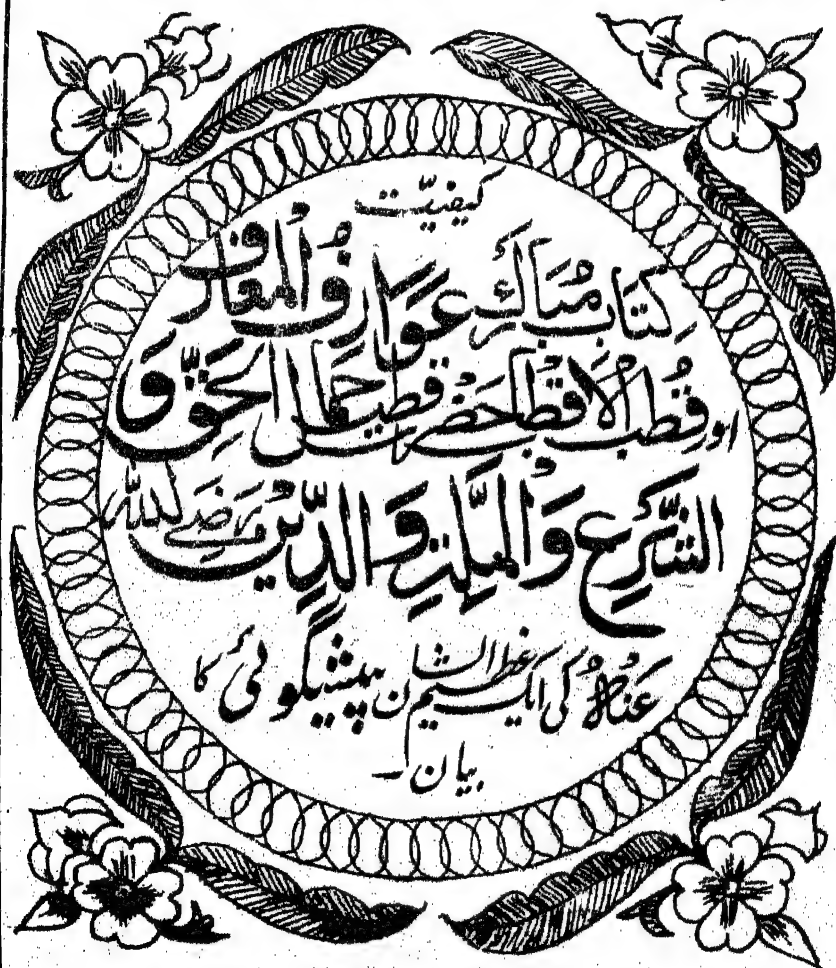 کیفیّت
کِتَاب مُبَارَکْ عَوَارِفُ الْمَعَارِف
اور قُطْبُ الْاَقْطَاب حَضْرَت قُطْب جَمَالُ الْحَقِّ وَ
الشَّرْعِ وَالْمِلَّةِ وَالدِّیْن رَضِیَ اللہُ
عَنْہُ کی ایک عظیم الشان پیشیگوئی کا
بیان